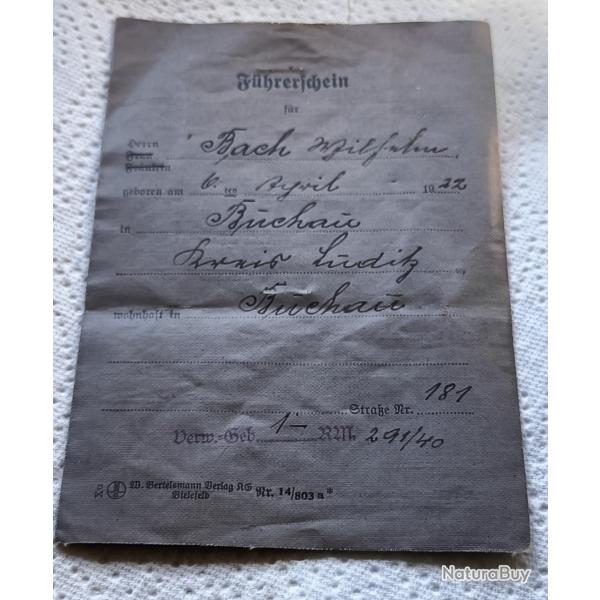 Führerschein
für
Herrn Bach Wilhelm,
Frau
Fräulein
geboren am 6. ten April 1922
in Buchau
Kreis Luditz,
wohnhaft in Buchau
Straße Nr. 181
Verw.-Geb. 1- RM. 291/40
W. Bertelsmann Verlag KG
Bielefeld Nr. 14/803 a*
NaturaBuy